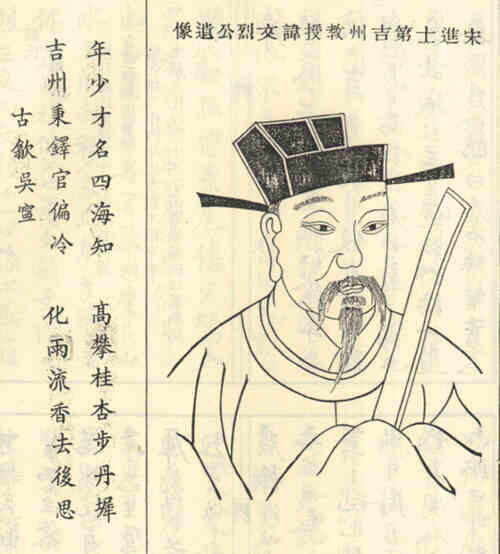 宋進士第吉州教授諱文烈公遺像
年少才名四海知 高攀桂杏步丹墀
吉州秉鐸官偏冷 化雨流香去後思
古歙吳